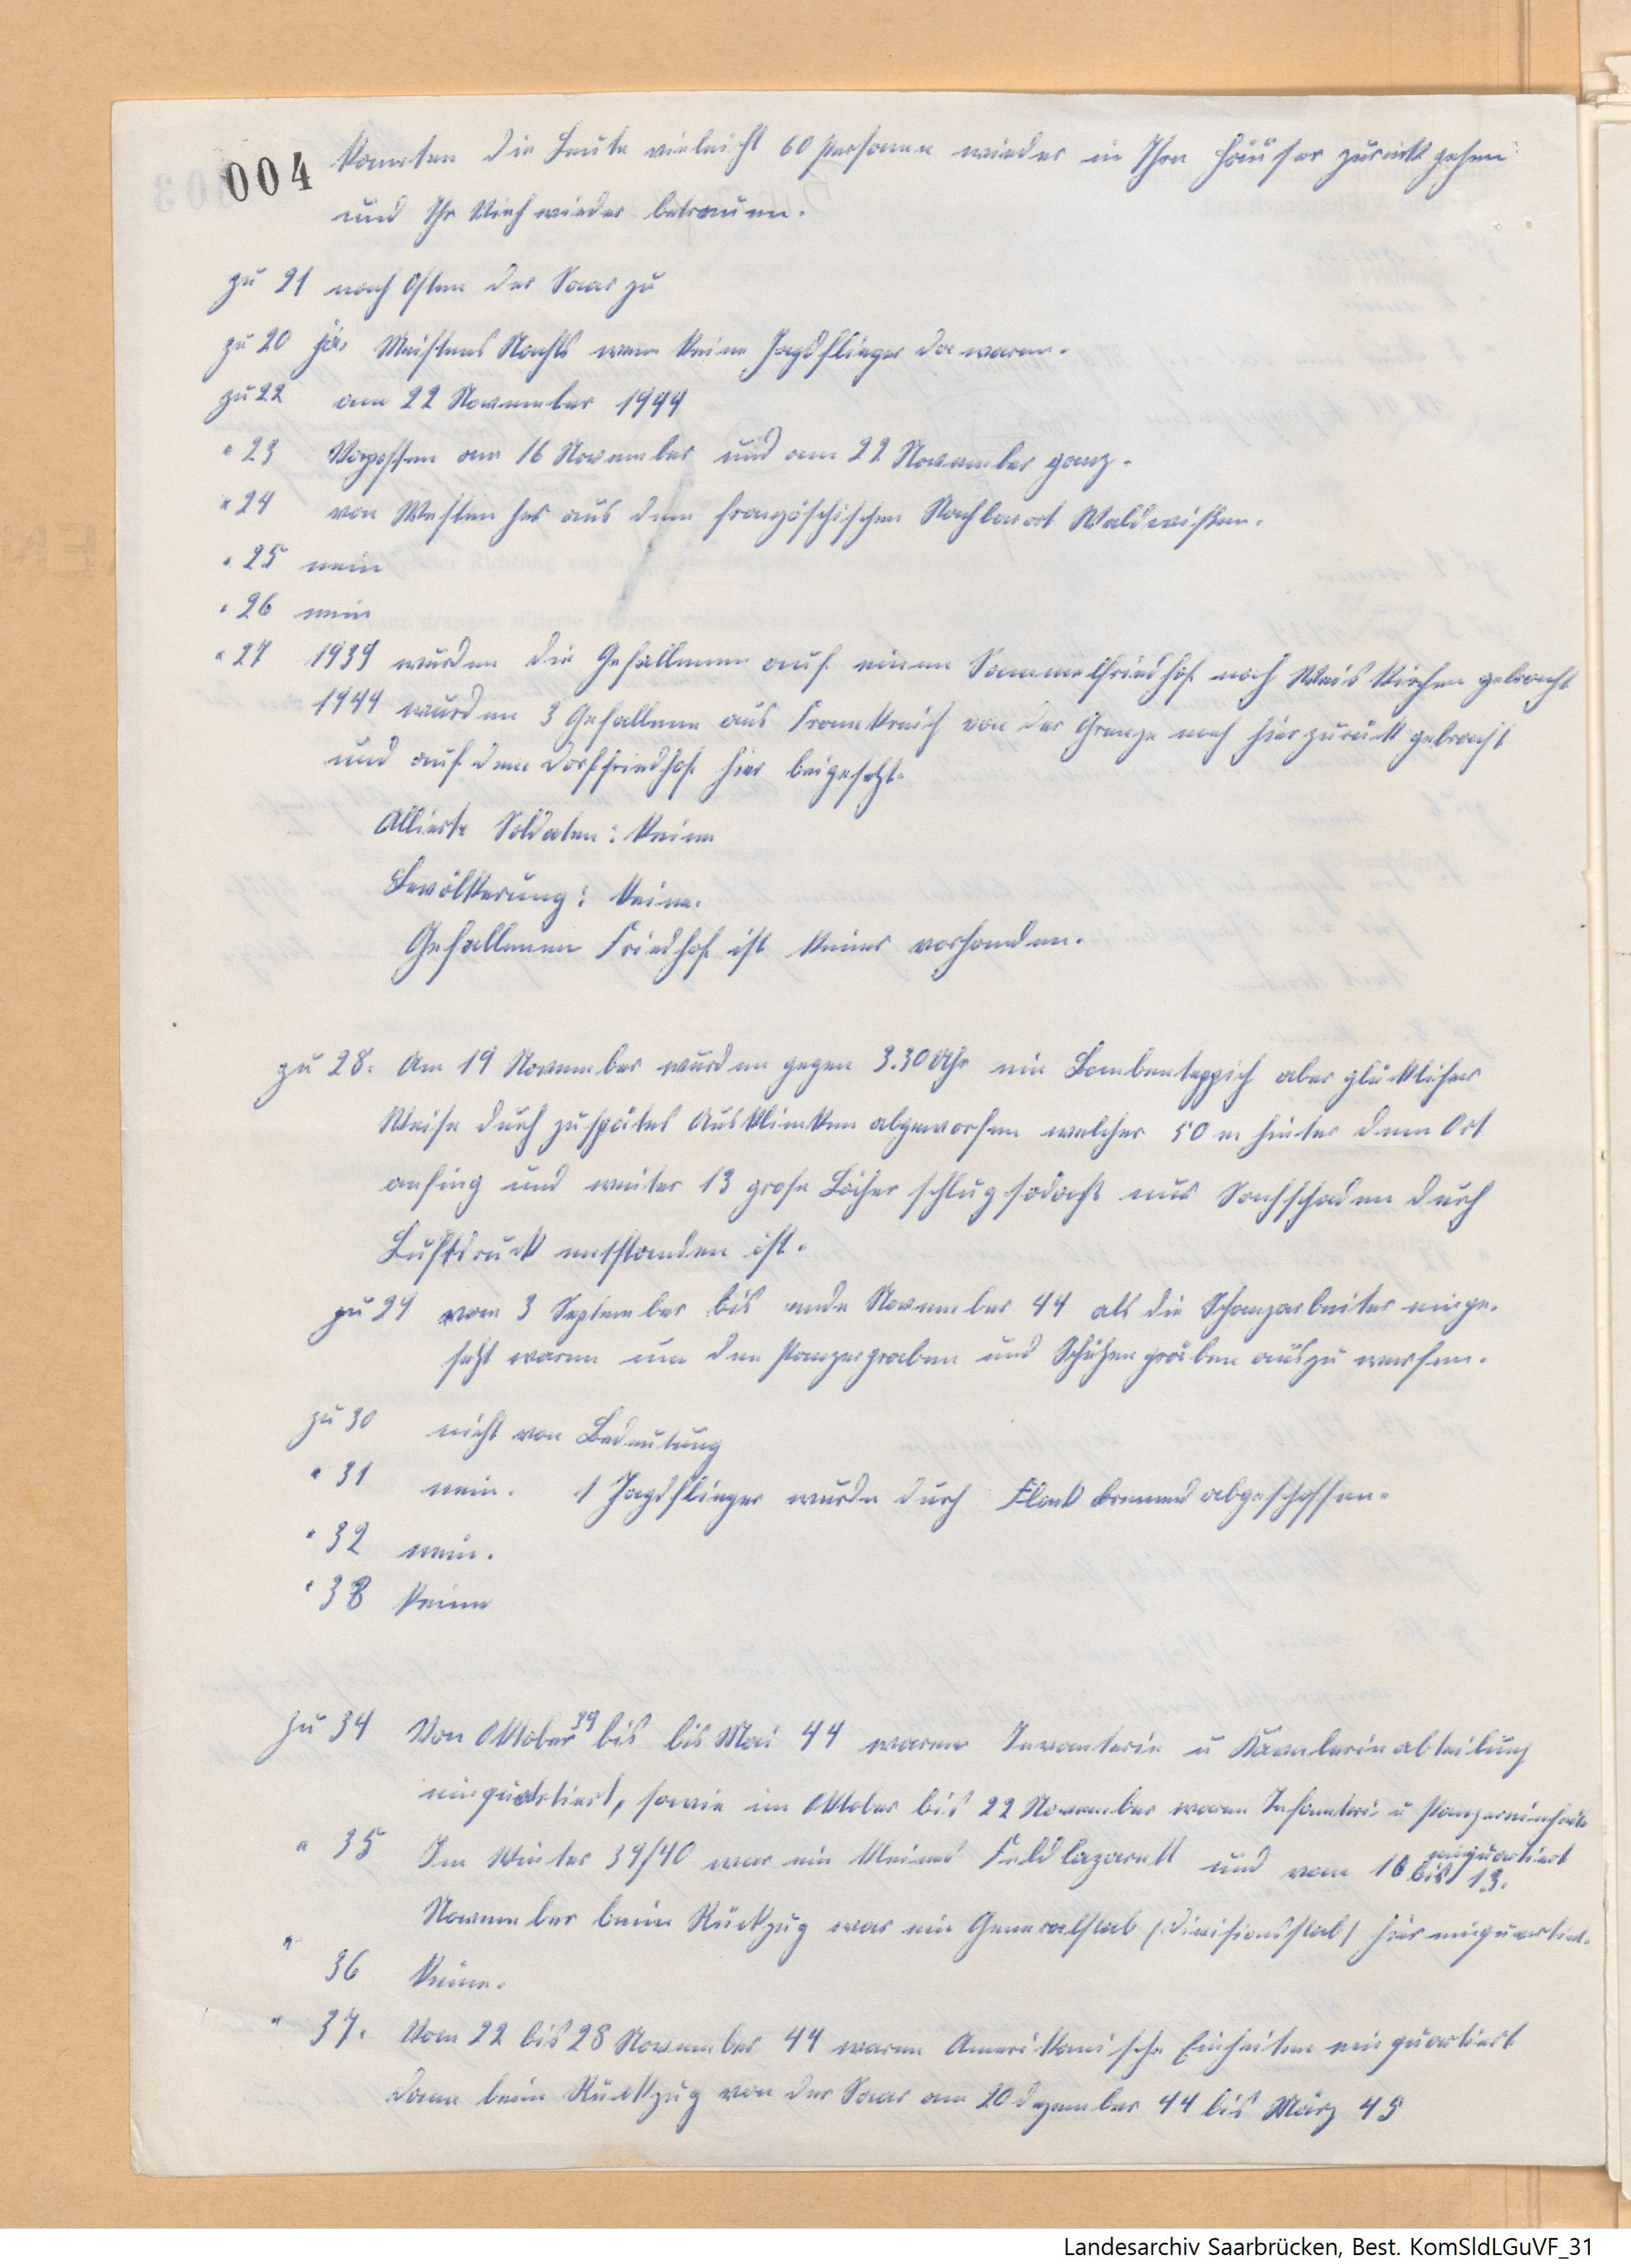 004
konnten die Leute vieleicht 60 personen wieder in Ihre Häuser zurükgehen
und Ihr Vieh wieder betreuen.
zu 21 nach Osten der Saar zu
zu 20 ja. Meistens Nachts wenn keine Jagdflieger da waren.
zu 22 am 22 November 1944
" 23 Vorposten am 16 November und am 22 November ganz.
" 24 von Westen her aus dem französchischen Nachbarort Waldwisen.
" 25 nein
" 26 nein
" 27 1939 wurden die Gefallenen auf einen Sammelfriedhof nach Weiskirchen gebracht
1944 wurden 3 Gefallene aus Frankreich von der Grenze nach hier zurük gebracht
und auf dem Dorffriedhof hier beigesetzt.
Allierte Soldaten: keine
Bevölkerung: keine.
Gefallenen Friedhof ist keiner vorhanden.
zu 28. Am 19 November wurden gegen 3.30 Uhr ein Bombenteppich aber glüklicher
Weise durch zuspätes Ausklinken abgeworfen welcher 50 m hinter dem Ort
anfing und weiter 13 grose Löcher schlug sodacht nur Sachschaden durch
Luftdruck entstanden ist.
zu 29 vom 3 September bis ende November 44 als die Schanzarbeiter einge-
setzt waren um den Panzergraben und Schützengräben auszu werfen.
zu 30 nicht von Bedeutung
" 31 nein. 1 Jagdflieger wurde durch Flak brennend abgeschossen.
" 32 nein.
" 33 keine
zu 34 Von Oktober 39 bis bis Mai 44 waren Invanterie u Kavalerieabteilung
einquartiert, sowie im Oktober bis 22 November waren Infanterie u Panzereinheiten
einquartiert
" 35 Im Winter 39/40 war ein kleines Feldlazarett und vom 16 bis 19.
November beim Rückzug war ein Generalstab (Divisionsstab) hier einquartiert.
" 36 keine.
" 37. Vom 22 bis 28 November 44 waren Amerikanische Einheiten einquartiert
dann beim Rückzug von der Saar am 20 dezember 44 bis März 45
Landesarchiv Saarbrücken, Best. KomSldLGuVF_31